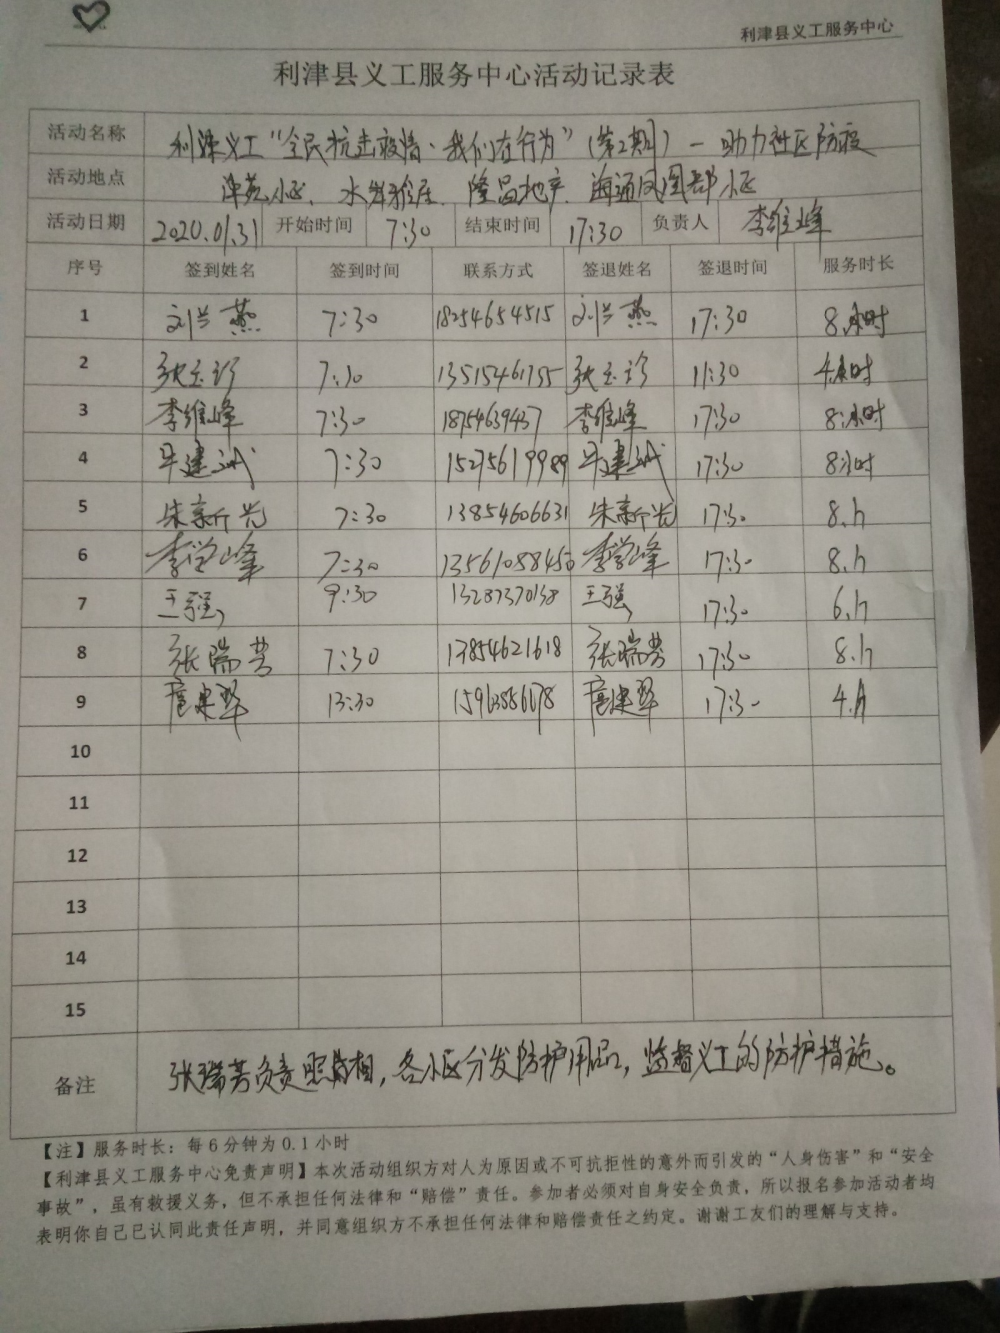 利津县义工服务中心
利津县义工服务中心活动记录表
活动名称 利津义工“全民抗击疫情·我们在行动”(第2期)—助力社区防疫
活动地点 津苑小区、水岸雅居、隆昌地产、海通凤凰郡小区
活动日期 2020.01.31 开始时间 7:30 结束时间 17:30 负责人 李维峰
序号 签到姓名 签到时间 联系方式 签退姓名 签退时间 服务时长
1 刘兰燕 7:30 18254654515 刘兰燕 17:30 8小时
2 张玉珍 7:30 张玉珍 11:30 4小时
3 李维峰 7:30 李维峰 17:30 8小时
4 建斌 7:30 15275619989 建斌 17:30 8小时
5 朱新光 7:30 13854606631 朱新光 17:30 8.h
6 李学峰 7:30 13561088450 李学峰 17:30 8.h
7 王强 9:30 13287370138 王强 17:30 6.h
8 张瑞芳 7:30 13854621618 张瑞芳 17:30 8.h
9 建翠 13:30 建翠 17:30 4.h
10
11
12
13
14
15
备注 张瑞芳负责照相,各小区分发防护用品,监督义工的防护措施。
【注】服务时长:每6分钟为0.1小时
【利津县义工服务中心免责声明】本次活动组织方对人为原因或不可抗拒性的意外而引发的“人身伤害”和“安全
事故”,虽有救援义务,但不承担任何法律和“赔偿”责任。参加者必须对自身安全负责,所以报名参加活动者均
表明你自己已认同此责任声明,并同意组织方不承担任何法律和赔偿责任之约定。谢谢工友们的理解与支持。